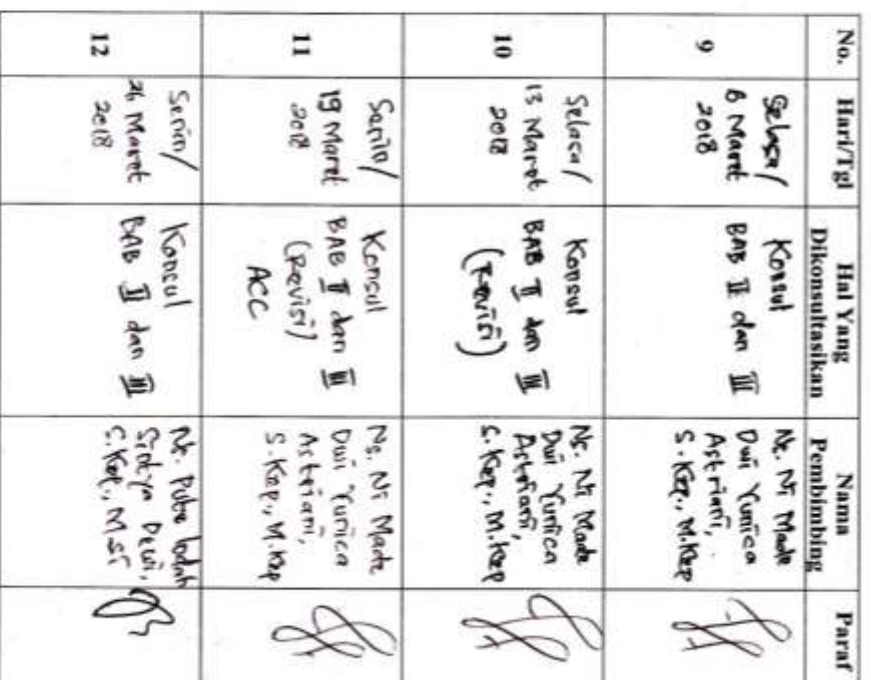 No. Hari/Tgl Hal Yang Dikonsultasikan Nama Pembimbing Paraf
9
Selasa/
6 Maret
2018
Konsul
BAB II dan III
Ns. Ni Made
Dwi Yunica
Astriani,
S.Kep., M.Kep
10
Selasa/
13 Maret
2018
Konsul
BAB II dan III
(Revisi)
Ns. Ni Made
Dwi Yunica
Astriani,
S.Kep., M.Kep
11
Senin/
19 Maret
2018
Konsul
BAB II dan III
(Revisi)
ACC
Ns. Ni Made
Dwi Yunica
Astriani,
S.Kep., M.Kep
12
Senin/
26 Maret
2018
Konsul
BAB II dan III
Ns. Putu Indah
Sintya Dewi,
S.Kep., M.Si